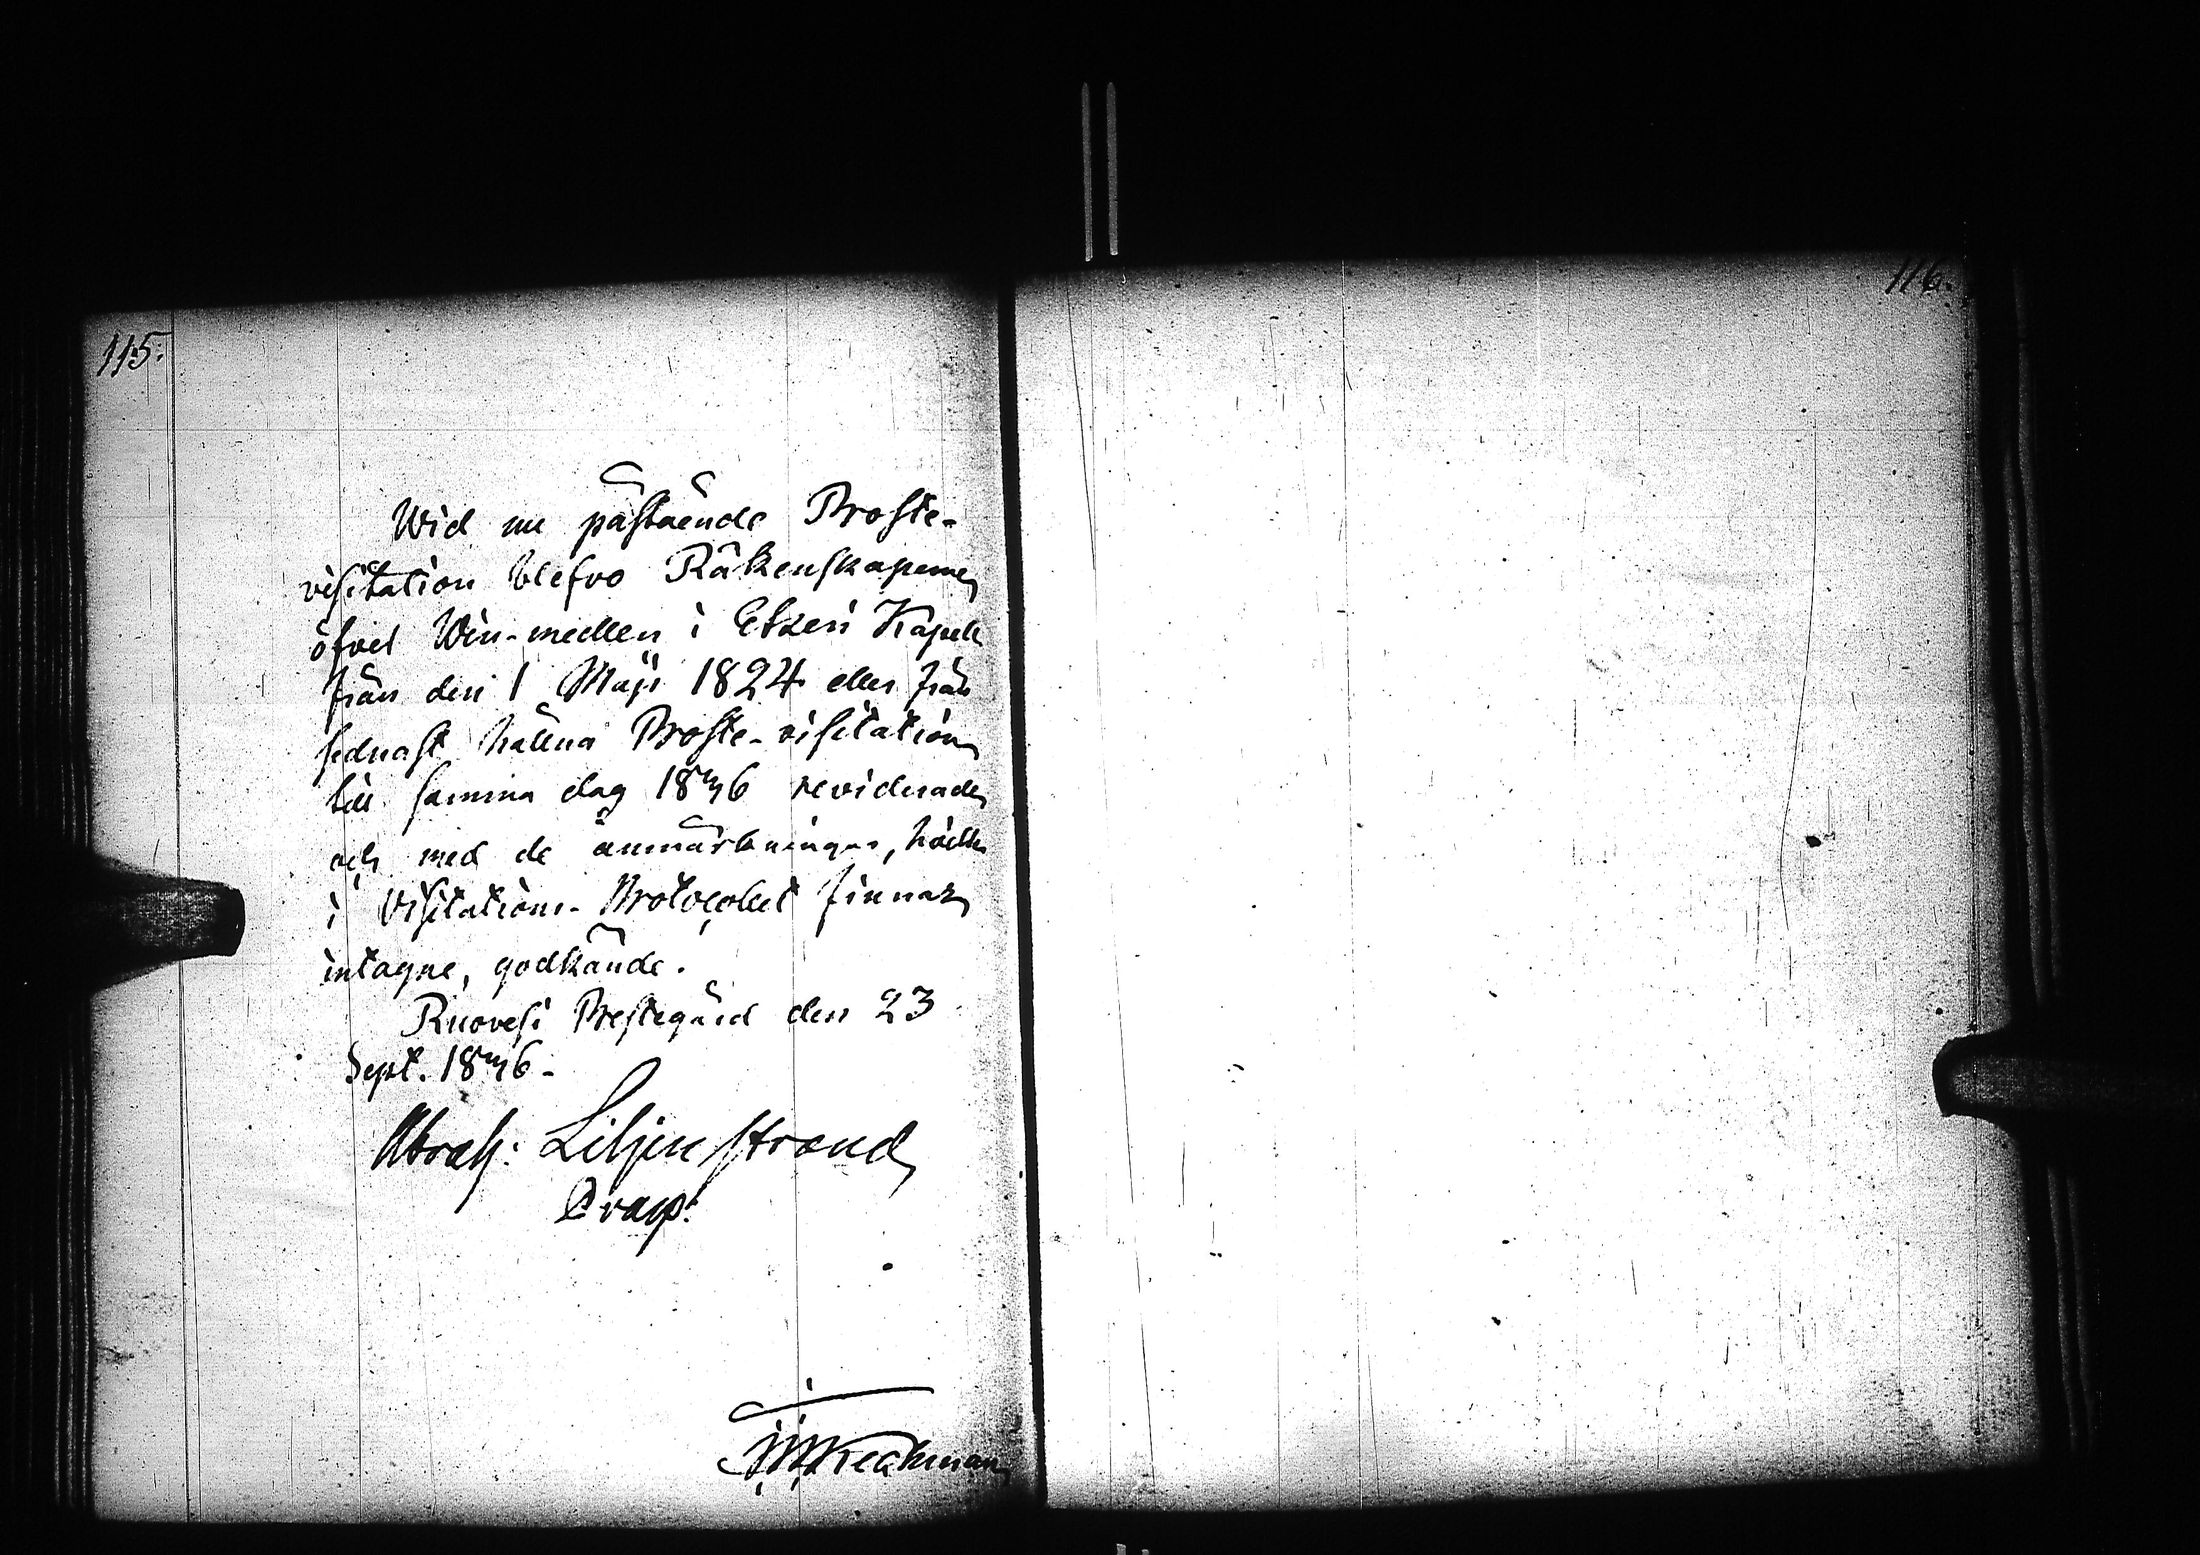 115.
116.
Wid nu påstående Proste-
visitation blefvo Räkenskaperne
öfver Win-medlen i Etseri Kapell
från den 1 Maji 1824 eller från
sednast hållna Proste-visitation
till samma dag 1836 reviderade
och med de anmärkningar, hvilka
i Visitations-Protocolet finnas
intagne, godkände.
Ruovesi Prestegård den 23
Sept. 1836.
Abrah: Liljenstrand
Præp: